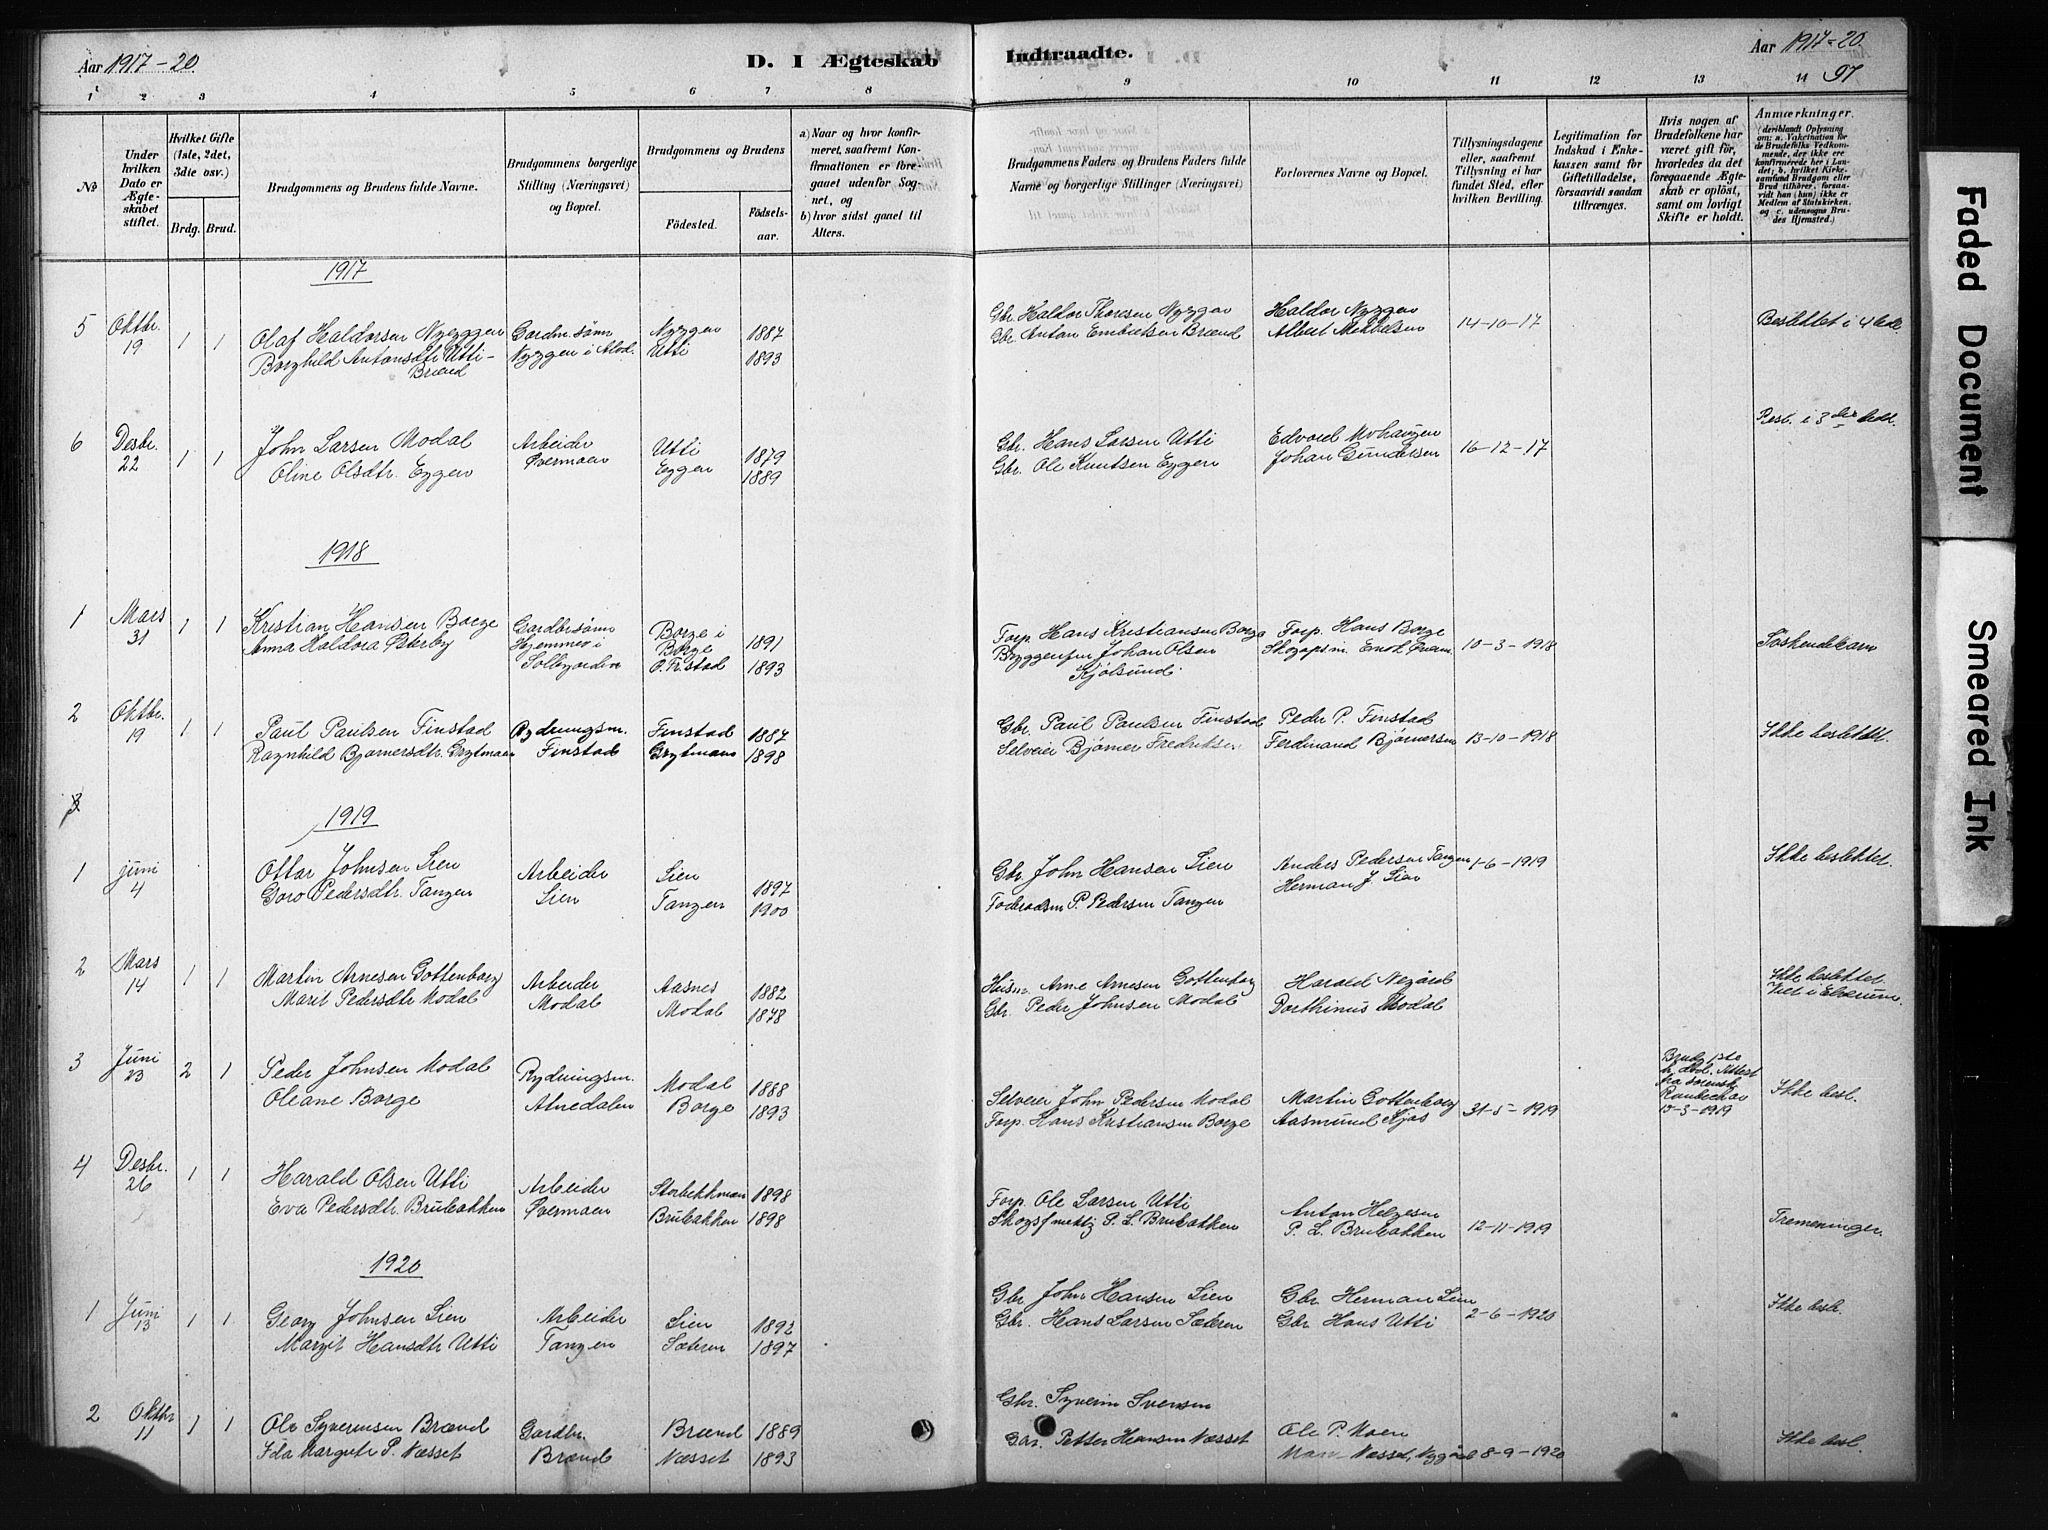 Aar 1917-20
D. I Ægteskab
Indtraadte.
Aar 1917-20
97
1 2 3 4 5 6 7 8 9 10 11 12 13 14
No
Under hvilken Dato er Ægteskabet stiftet.
Hvilket Gifte (1ste, 2det, 3die osv.)
Brdg. Brud.
Brudgommens og Brudens fulde Navne.
Brudgommens borgerlige Stilling (Næringsvei) og Bopæl.
Brudgommens og Brudens
Födested.
Födselsaar.
a) Naar og hvor konfirmeret, saafremt Konfirmationen er foregaaet udenfor Sognet, og
b) hvor sidst gaaet til Alters.
Brudgommens Faders og Brudens Faders fulde Navne og borgerlige Stillinger (Næringsvei)
Forlovernes Navne og Bopæl.
Tillysningsdagene eller, saafremt Tillysning ei har fundet Sted, efter hvilken Bevilling.
Legitimation for Indskud i Enkekassen samt for Giftetilladelse, forsaavidt saadan tiltrænges.
Hvis nogen af Brudefolkene har været gift för, hvorledes da det foregaaende Ægteskab er oplöst, samt om lovligt Skifte er holdt.
Anmærkninger.
(deriblandt Oplysning om: a. Vakcination for de Brudefolks Vedkommende, der ikke ere konfirmerede her i Landet; b. hvilket Kirkesamfund Brudgom eller Brud tilhörer, forsaavidt han (hun) ikke er Medlem af Statskirken, og c. udensogns Brudes Hjemsted.)
1917
5 Oktbr. 19 1 1
Olaf Haldorsen Nyeggen
Borghild Antonsdtr Utti-Brænd
Gardm.sønn
Nyggen i Alvd.
Nyggen 1887
Utti 1893
Gbr. Haldor Thoresen Nyggen
Gbr Anton Embretsen Brænd
Haldor Nyggen
Albert Mikkelsen
14-10-17
Beslektet i 4 led
6 Desbr. 22 1 1
John Larsen Modal
Oline Olsdtr. Eggen
Arbeider
Øvermoen
Utti 1879
Eggen 1889
Gbr. Hans Larsen Utti
Gbr. Ole Knutsen Eggen
Edvard Mohaugen
Johan Gundersen
16-12-17
Besl. i 3die ledd.
1918
1 Mars 31 1 1
Kristian Hansen Borge
Anna Haldora Østerby
Gardbr.sønn
Hjemme i
Sollijorden
Borge i
Borge 1891
O.Fr.stad 1893
Forp. Hans Kristiansen Borge
Byggenfm Johan Olsen
Kjølsund.
Forp. Hans Borge
Skogopsm. Enok Øverm.
10-3-1918
Søskendebarn
2 Oktbr. 19 1 1
Paul Paulsen Finstad
Ragnhild Bjørnersdtr. Grytmoen
Rydningsm.
Finstad
Finstad 1887
Grytmoen 1898
Gbr. Paul Paulsen Finstad
Selveier Bjørner Fredriksen
Peder P. Finstad
Ferdinand Bjørnersen
13-10-1918
Ikke beslektet.
3
1919
1 juni 4
Ottar Johnsen Lien
Goro Pedersdtr. Tangen
Arbeider
Lien
Lien 1897
Tangen 1900
Gbr. John Hansen Lien
Føderaadsm P. Pedersen Tangen
Anders Pedersen Tangen
Herman J. Lien
1-6-1919
Ikke beslektet.
2 Mars 14 1 1
Martin Arnesen Gottenborg
Marit Pedersdtr Modal
Arbeider
Modal
Aasnes 1882
Modal 1878
Husm Arne Arnesen Gottenborg
Gbr. Peder Johnsen Modal
Harald Negård
Dorthinus Modal
Ikke beslektet.
Viet i Elverum.
3 Juni 23 2 1
Peder Johnsen Modal
Oleane Borge
Rydningsm.
Atnedalen
Modal 1888
Borge 1893
Selveier John Pedersen Modal
Forp. Hans Kristiansen Borge
Martin Gottenborg
Aasmund Kjøs
31-5-1919
Brudg. 1ste
h. død. Attest
fra sorensk.
13-3-1919
Ikke besl.
4 Desbr. 26 1 1
Harald Olsen Utti
Eva Pedersdtr. Brubakken
Arbeider
Øvermoen
Storbekkmoen 1898
Brubakken 1898
Forp. Ole Larsen Utti
Skogsfmektig P. L. Brubakken
Anton Helgesen
P. L. Brubakken
12-11-1919
Tremeninger.
1920
1 Juni 13 1 1
Georg Johnsen Lien
Margit Hansdtr Utti
Arbeider
Tangen
Lien 1892
Sæteren 1897
Gbr John Hansen Lien
Gbr. Hans Larsen Sæteren
Gbr. Herman Lien
Gbr Hans Utti
2-6-1920
Ikke besl.
2 Oktbr 11 1 1
Ole Syverinsen Brænd
Ida Margrete P. Næsset
Gardbr.
Brænd
Brænd 1889
Næsset 1893
Gbr. Syverin Svensen
Gbr. Petter Hansen Næsset
Ole P. Moen
Næsset, Nygård 8-9-1920
Ikke besl.
Faded Document
Smeared Ink